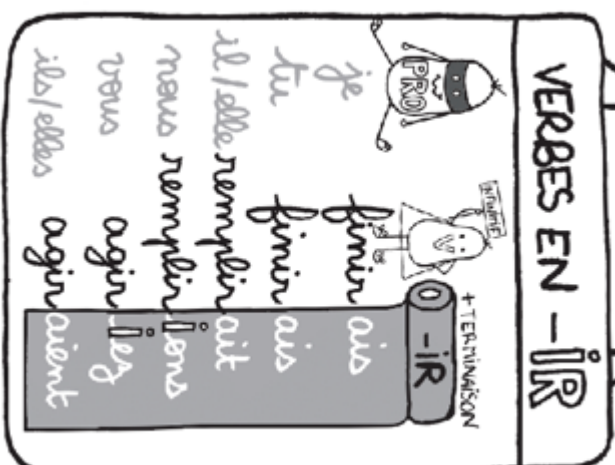 VERBES EN -IR
PRO
INFINITIF
+ TERMINAISON
-IR
je finir ais
tu finir ais
il/elle remplir ait
nous remplir ions
vous agir iez
ils/elles agir aient